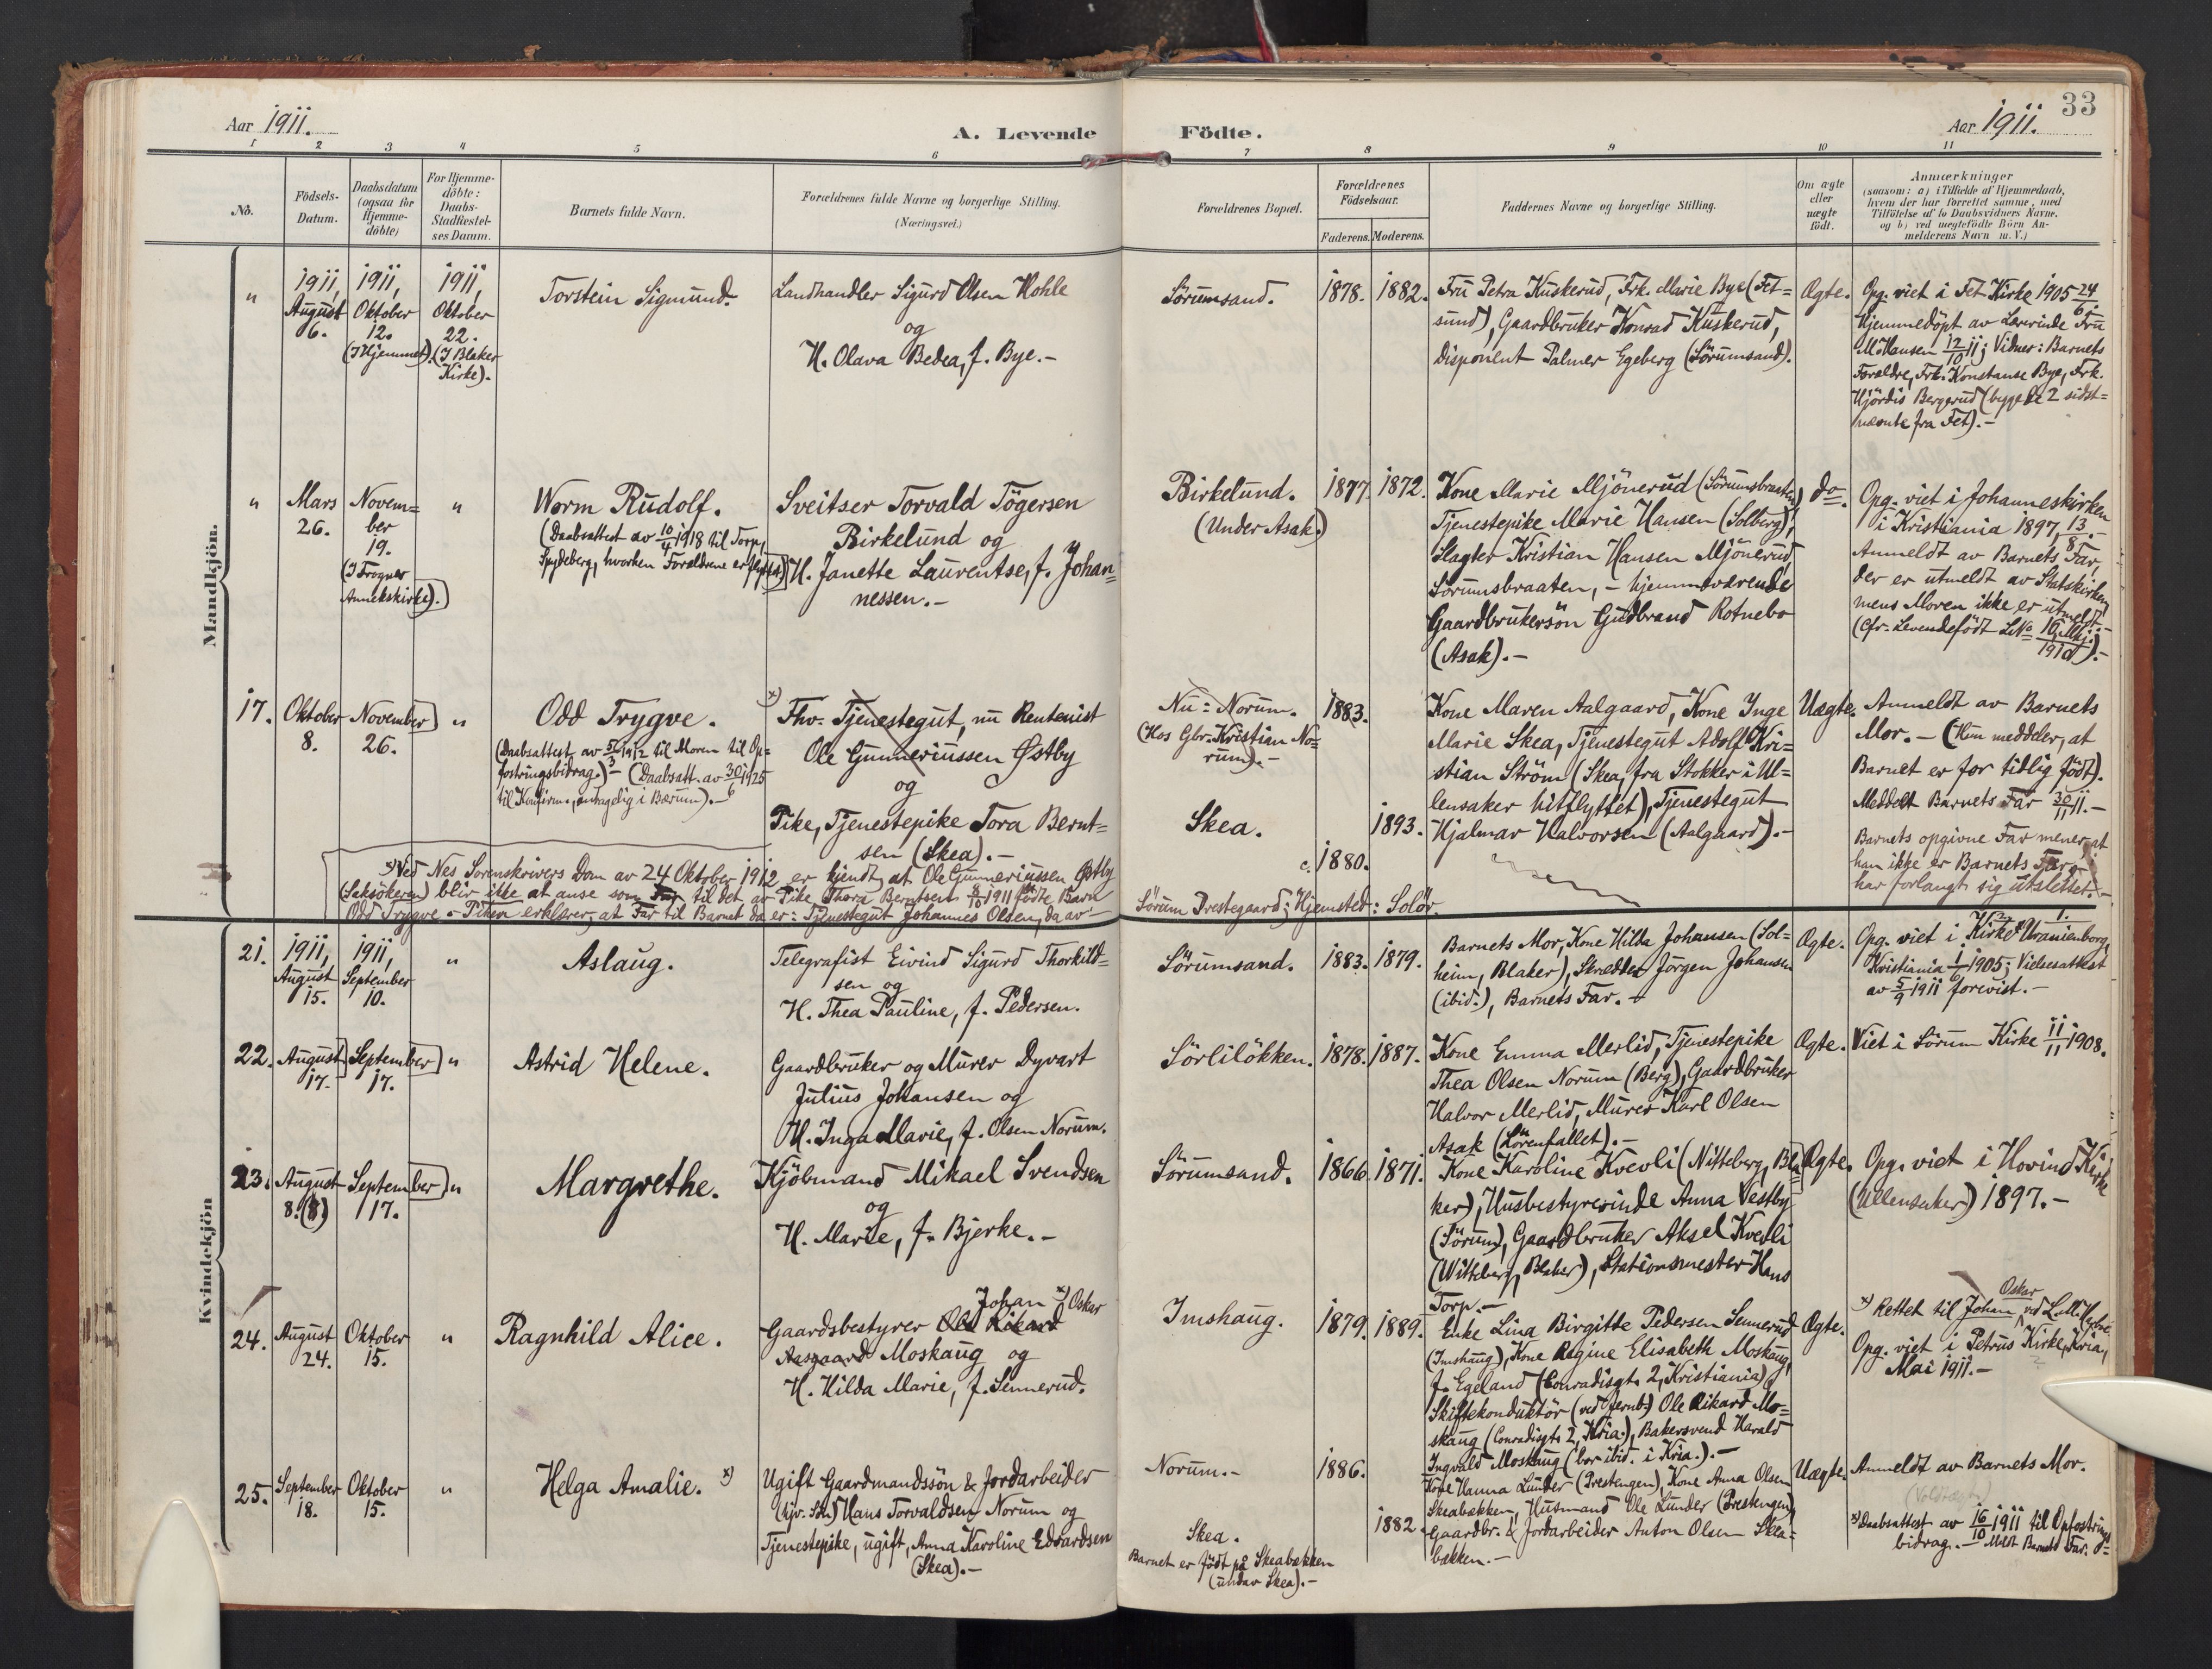 33
Aar 1911.
A. Levende
Födte.
Aar 1911.
1
2
3
4
5
6
7
8
9
10
11
No.
Födsels-
Datum.
Daabsdatum
(ogsaa for
Hjemme-
döbte)
For Hjemme-
döbte:
Daabs-
Stadfæstel-
ses Datum.
Barnets fulde Navn.
Forældrenes fulde Navne og borgerlige Stilling.
(Næringsvei.)
Forældrenes Bopæl.
Forældrenes
Födselsaar.
Faderens.
Moderens.
Faddernes Navne og borgerlige Stilling.
Om ægte
eller
uægte
födt.
Anmærkninger
(saasom: a) i Tilfælde af Hjemmedaab,
hvem der har forrettet samme, med
Tilföielse af to Daabsvidners Navne,
og b) ved uægtefödte Börn An-
melderens Navn m.V.)
Mandkjön.
"
1911,
August
6.
1911,
Oktober
12.
(I Hjemmet).
1911,
Oktober
22.
(I Blaker
Kirke).
Torstein Sigmund.
Landhandler Sigurd Olsen Hohle
og
H. Olava Bedea, f. Bye.-
Sörumsand.
1878.
1882.
Fru Petra Kuskerud, Frk. Marie Bye (Fet=
sund), Gaardbruker Konrad Kuskerud,
Disponent Palmer Egeberg (Sörumsand).
Ægte.
Opg. viet i Fet Kirke 1905 24/6;
Hjemmedöpt av Lærerinde Fru
M. Hansen 12/10 11; Vidner: Barnets
Forældre, Frk. Konstanse Bye, Frk.
Hjördis Bergerud (begge de 2 sidst=
nævnte fra Fet).-
"
Mars
26.
Novem=
ber
19.
(I Frogner
Annekskirke).
"
Worm Rudolf.
(Daabsattest av 10/4 1918 til Torp,
Spydeberg, hvorhen Forældrene er flyttet.)
Sveitser Torvald Tögersen
Birkelund og
H. Janette Laurentse, f. Johan=
nessen.-
Birkelund.
(Under Asak.)
1877.
1872.
Kone Marie Mjönerud (Sörumsbraaten),
Tjenestepike Marie Hansen (Solberg),
Slagter Kristian Hansen Mjönerud,
Sörumsbraaten, - hjemmeværende
Gaardbrukersön Gudbrand Rotnebo
(Asak).-
do
Opg. viet i Johanneskirken
i Kristiania 1897, 13/8.-
Anmeldt av Barnets Far,
der er utmeldt av Statskirken,
mens Moren ikke er utmeldt.-
(Cfr. Levendefödt LNo 10, Mkj. 1910).-
17.
Oktober
8.
November
26.
"
Odd Trygve.
(Daabsattest av 5/3 1912 til Moren til Op=
fostringsbidrag.)- (Daabsatt. av 30/6 1925
til Konfirm., antagelig i Bærum).-
x) Fhv. Tjenestegut, nu Rentenist
Ole Gunneriussen Østby
og
Pike, Tjenestepike Tora Bernt=
sen (Skea).-
Nu: Norum.
(Hos Gbr. Kristian No=
rum).-
Skea.
1883.
1893.
c. 1880.
Kone Maren Aalgaard, Kone Inge
Marie Skea, Tjenestegut Adolf Kri=
stian Ström (Skea, fra Stokker i Ul=
lensaker hitflyttet), Tjenestegut
Hjalmar Halvorsen (Aalgaard).-
Uægte.
Anmeldt av Barnets
Mor.- (Hun meddeler, at
Barnet er for tidlig födt).
Meddelt Barnets Far 30/11 11.-
Barnets opgivne Far mener, at
han ikke er Barnets Far,
har forlangt sig utslettet.-
x) Ved Nes Sorenskrivers Dom av 24 Oktober 1912 er kjendt, at Ole Gunneriussen Østby
(Saksökeren) blir ikke at anse som Far til det av Pike Thora Berntsen 8/10 1911 födte Barn
Odd Trygve - Piken erklærer, at Far til Barnet da er: Tjenestegut Johannes Olsen, da av
Sörum Prestegaard; Hjemsted: Solör.
Kvindekjön
21.
1911,
August
15.
1911,
September
10.
"
Aslaug.
Telegrafist Eivind Sigurd Thorkild=
sen og
H. Thea Pauline, f. Pedersen.
Sörumsand.
1883.
1879.
Barnets Mor, Kone Hilda Johansen (Sol=
heim, Blaker), Skrædder Jörgen Johansen
(ibid.), Barnets Far.-
Ægte.
Opg. viet i Uranienborg Kirke,
Kristiania 1/6 1905; Vielsesattest
av 5/9 1911 forevist.-
22.
August
17.
September
17.
"
Astrid Helene.
Gaardbruker og Murer Dyvart
Julius Johansen og
H. Inga Marie, f. Olsen Norum.
Sörliløkken.
1878.
1887.
Kone Emma Merlid, Tjenestepike
Thea Olsen Norum (Berg), Gaardbruker
Halvor Merlid, Murer Karl Olsen
Asak (Lörenfallet).-
Ægte.
Viet i Sörum Kirke 11/11 1908.
23.
August
8. (8)
September
17.
"
Margrethe.
Kjöbmand Mikael Svendsen
og
H. Marie, f. Bjerke.-
Sörumsand.
1866.
1871.
Kone Karoline Kvevli (Nitteberg, Bla=
ker), Husbestyrerinde Anna Vestby
(Sörum), Gaardbruker Aksel Kvevli
(Nitteberg, Blaker), Stationsmester Hans
Torp.-
Ægte.
Opg. viet i Hovind Kirke
(Ullensaker) 1897.-
24.
August
24.
Oktober
15.
"
Ragnhild Alice.
Johan x) Oskar
Gaardsbestyrer Ole Rikard
Aasgaard Moskaug og
H. Hilda Marie, f. Sennerud.
Imshaug.
1879.
1889.
Enke Lina Birgitte Pedersen Sennerud
(Imshaug), Kone Regine Elisabeth Moskaug,
f. Egeland (Conradisgt. 2, Kristiania),
Skiftekonduktör (ved Jernb.) Ole Rikard Mo=
skaug (Conradisgt. 2, Kria.), Bakersvend Harald
Ingvald Moskaug (bor ibid. i Kria.).-
Ægte.
x) Rettet til Johan Oskar ved
Opg. viet i Petrus Kirke, Kria,
Mai 1911.-
25.
September
18.
Oktober
15.
"
Helga Amalie. x)
Ugift Gaardmandssön & Jordarbeider
Hans Torvaldsen Norum og
Tjenestepike, ugift, Anna Karoline Edvardsen
(Skea).-
Norum.-
Skea.
Barnet er födt på Skeabækken
(under Skea).-
1886.
1882.
Kone Hanna Lunder (Prestengen), Kone Anna Olsen
Skeabækken, Husmand Ole Lunder (Prestengen),
Gaardbr. & Jordarbeider Anton Olsen Skea=
bækken.-
Uægte.
Anmeldt av Barnets Mor.
x) Daabsattest av 16/10 1911 til Opfostrings=
bidrag.- Barnets Far.